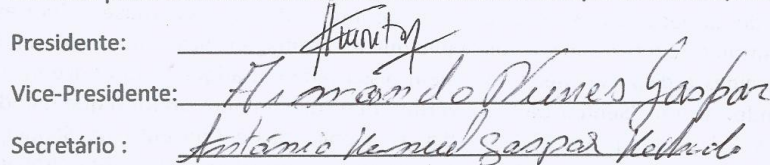 Presidente:
Vice-Presidente: Armando Nunes Gaspar
Secretário : António Manuel Gaspar Machado